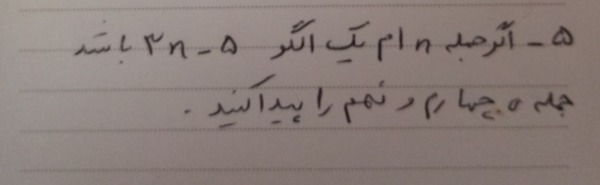 ۵ - اگر جمله n ام یک الگو ۳n - ۵ باشد
جمله ی چهارم و نهم را پیدا کنید .